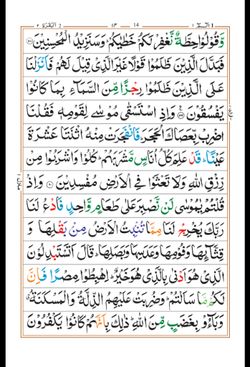 البقرة ٢ ١٣ ١٤ الٓمّٓ ١
وَّقُوْلُوْا حِطَّةٌ نَّغْفِرْ لَكُمْ خَطٰيٰكُمْ ؕ وَسَنَزِيْدُ الْمُحْسِنِيْنَ
فَبَدَّلَ الَّذِيْنَ ظَلَمُوْا قَوْلًا غَيْرَ الَّذِيْ قِيْلَ لَهُمْ فَاَنْزَلْنَا
عَلَى الَّذِيْنَ ظَلَمُوْا رِجْزًا مِّنَ السَّمَآءِ بِمَا كَانُوْا
يَفْسُقُوْنَ وَاِذِ اسْتَسْقٰى مُوْسٰى لِقَوْمِهٖ فَقُلْنَا
اضْرِبْ بِّعَصَاكَ الْحَجَرَ ؕ فَانْفَجَرَتْ مِنْهُ اثْنَتَا عَشْرَةَ
عَيْنًا ؕ قَدْ عَلِمَ كُلُّ اُنَاسٍ مَّشْرَبَهُمْ ؕ كُلُوْا وَاشْرَبُوْا مِنْ
رِّزْقِ اللّٰهِ وَلَا تَعْثَوْا فِى الْاَرْضِ مُفْسِدِيْنَ وَاِذْ
قُلْتُمْ يٰمُوْسٰى لَنْ نَّصْبِرَ عَلٰى طَعَامٍ وَّاحِدٍ فَادْعُ لَنَا
رَبَّكَ يُخْرِجْ لَنَا مِمَّا تُنْۢبِتُ الْاَرْضُ مِنْۢ بَقْلِهَا وَ
قِثَّآئِهَا وَفُوْمِهَا وَعَدَسِهَا وَبَصَلِهَا ؕ قَالَ اَتَسْتَبْدِلُوْنَ
الَّذِىْ هُوَ اَدْنٰى بِالَّذِىْ هُوَ خَيْرٌ ؕ اِهْبِطُوْا مِصْرًا فَاِنَّ
لَكُمْ مَّا سَاَلْتُمْ ؕ وَضُرِبَتْ عَلَيْهِمُ الذِّلَّةُ وَالْمَسْكَنَةُ
وَبَآءُوْ بِغَضَبٍ مِّنَ اللّٰهِ ؕ ذٰلِكَ بِاَنَّهُمْ كَانُوْا يَكْفُرُوْنَ